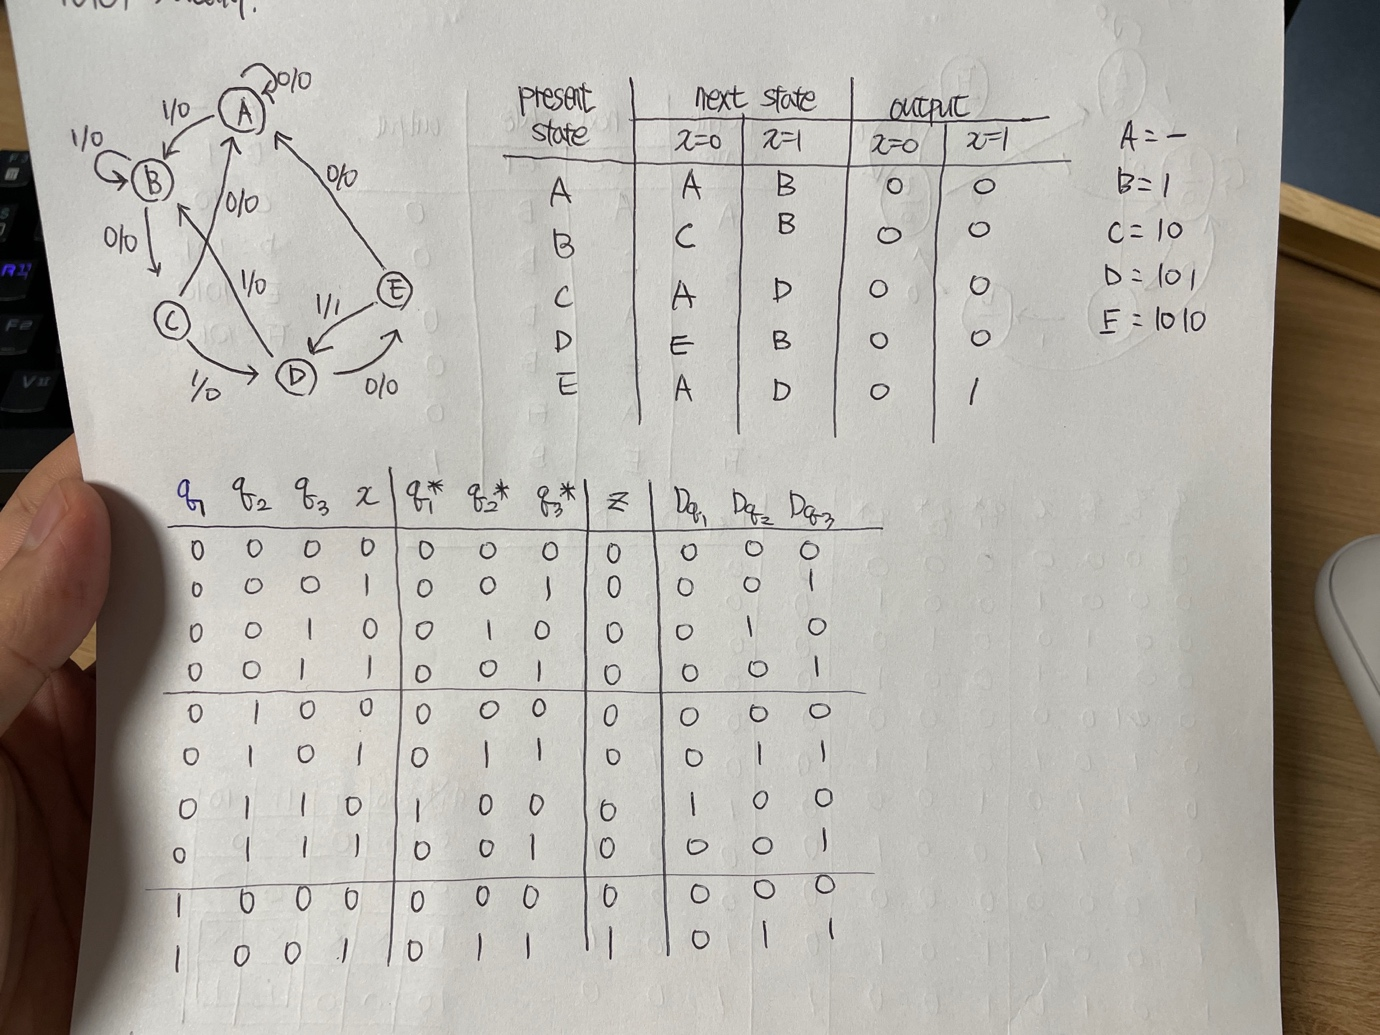 0/0
A
1/0
1/0
B
0/0
0/0
0/0
1/0
1/1
E
C
D
1/0
0/0
present state | next state | output
x=0 | x=1 | x=0 | x=1
A | A | B | 0 | 0
B | C | B | 0 | 0
C | A | D | 0 | 0
D | E | B | 0 | 0
E | A | D | 0 | 1
A = –
B = 1
C = 10
D = 101
E = 1010
q1 q2 q3 x | q1* q2* q3* | z | Dq1 Dq2 Dq3
0 0 0 0 | 0 0 0 | 0 | 0 0 0
0 0 0 1 | 0 0 1 | 0 | 0 0 1
0 0 1 0 | 0 1 0 | 0 | 0 1 0
0 0 1 1 | 0 0 1 | 0 | 0 0 1
0 1 0 0 | 0 0 0 | 0 | 0 0 0
0 1 0 1 | 0 1 1 | 0 | 0 1 1
0 1 1 0 | 1 0 0 | 0 | 1 0 0
0 1 1 1 | 0 0 1 | 0 | 0 0 1
1 0 0 0 | 0 0 0 | 0 | 0 0 0
1 0 0 1 | 0 1 1 | 1 | 0 1 1